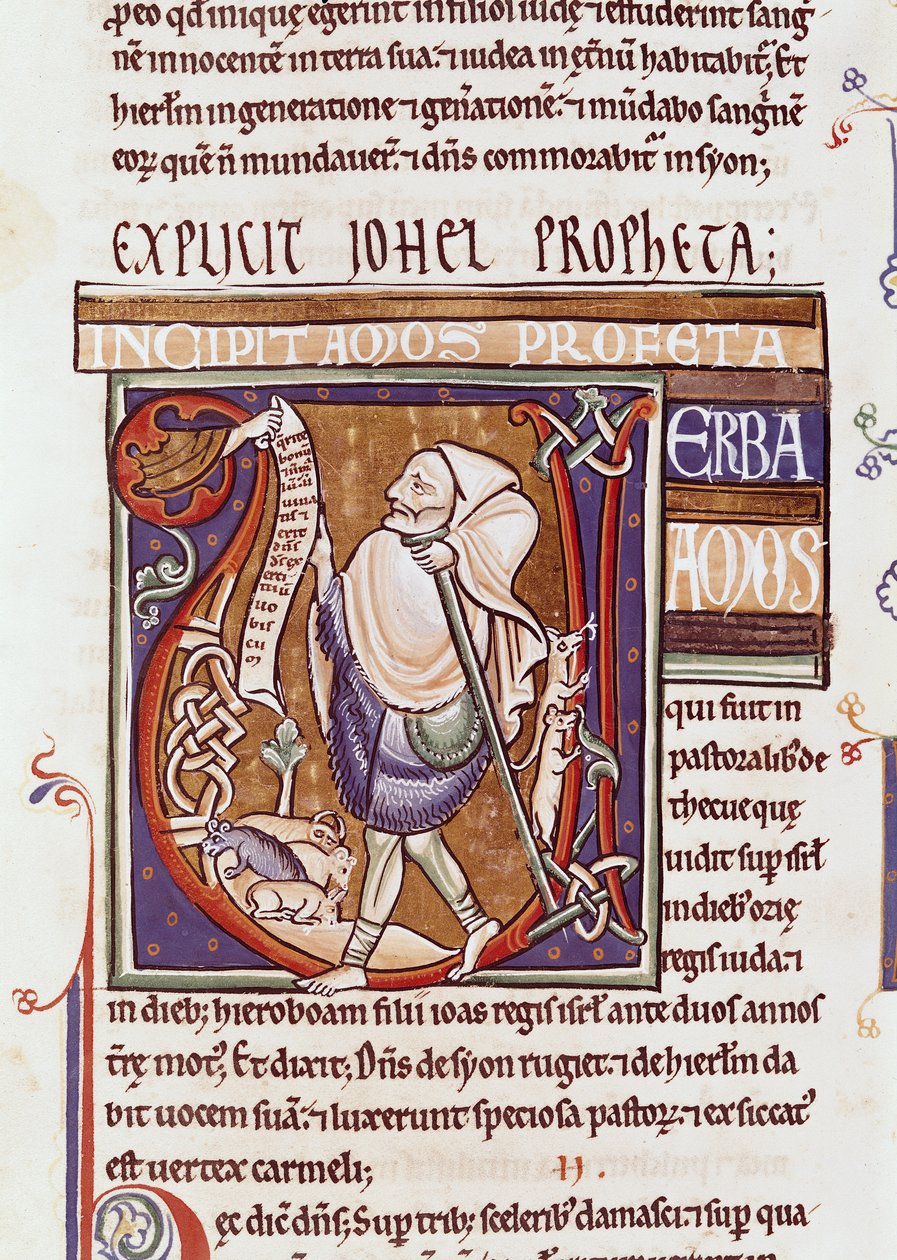 ꝑeo qđ iniquę egerint in filioſ iudę ⁊ effuderint ſang̅
nē innocentē in terra ſua⁖ ⁊ iudea in ęt̅nū habitabit̃; Et
hierłm in generatione ⁊ gen̅atione⁖ ⁊ mūdabo ſangͥnē
eoꝝ quē n̅ mundauer̃⁖ ⁊ dn̅s commorabit̃ in ſyon;
EXPLICIT JOHEL PROPhETA;
INCIPIT AMOS PROFETA
VERBA
AMOS
qrite
bonū
⁊ ñ m̅
lū⁖ ut
uiua
tis ⁊
erit
dn̅s
ds̅ ex
erci
tuū
uo
biſ
cū
qui fuit in
paſtoralibꝰ de
thecue quę
uidit ſuꝑ iſrł
in diebꝰ ozię
regiſ iuda⁖ ⁊
in dieb; hieroboam filii ioas regiſ iſrł ante duos annos
t̅rę motꝰ; Et dixit; Dn̅s de ſyon rugiet⁖ ⁊ de hierłm da
bit uocem ſuā⁖ ⁊ luxerunt specioſa paſtoꝝ⁖ ⁊ exſiccatꝰ
eſt uertex carmeli; II.
Hęc dic̅ dn̅s; Suꝑ trib; ſceleribꝰ damaſci⁖ ⁊ ſuꝑ qua